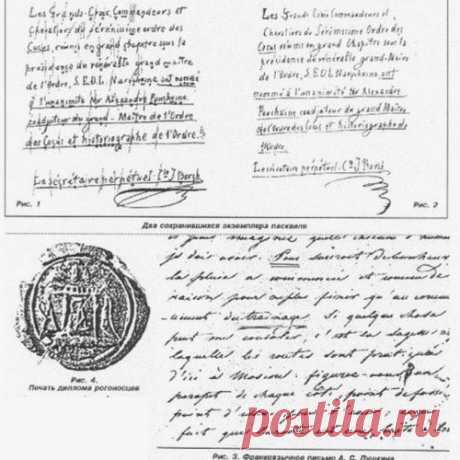 Les Grands-Croix, Commandeurs et
Chevaliers du Sérénissime Ordre des
Cocus, réunis en grand Chapitre sous la
présidence du vénérable grand-Maître
de l'Ordre, S.E.D.L. Narychkine, ont nommé
à l'unanimité Mr Alexandre Pouchkine
coadjuteur du grand Maître de l'Ordre
des Cocus et historiographe de l'Ordre.
Le secrétaire perpétuel: Cte J. Borch
Рис. 1
Les Grands-Croix Commandeurs et
Chevaliers du Sérénissime Ordre des
Cocus réunis en grand Chapitre sous la
présidence du vénérable grand-Maître
de l'Ordre, S.E.D.L. Narychkine ont
nommé à l'unanimité Mr Alexandre
Pouchkine coadjuteur du grand Maître
de l'Ordre des Cocus et historiographe de
l'Ordre.
Le secrétaire perpétuel: Cte J. Borch
Рис. 2
Два сохранившихся экземпляра пасквиля
je dois avoir. Vous saurez
la pluie a commencé et
raison pour n'plus finir qu'au
Si quelque chose
peut me consoler, c'est la sagesse
laquelle les routes sont
d'ici à Moscou: figurez-vous
parapet de chaque côté, point de
point d'
Рис. 4.
Печать диплома рогоносцев
Рис. 3. Франкоязычное письмо А. С. Пушкина